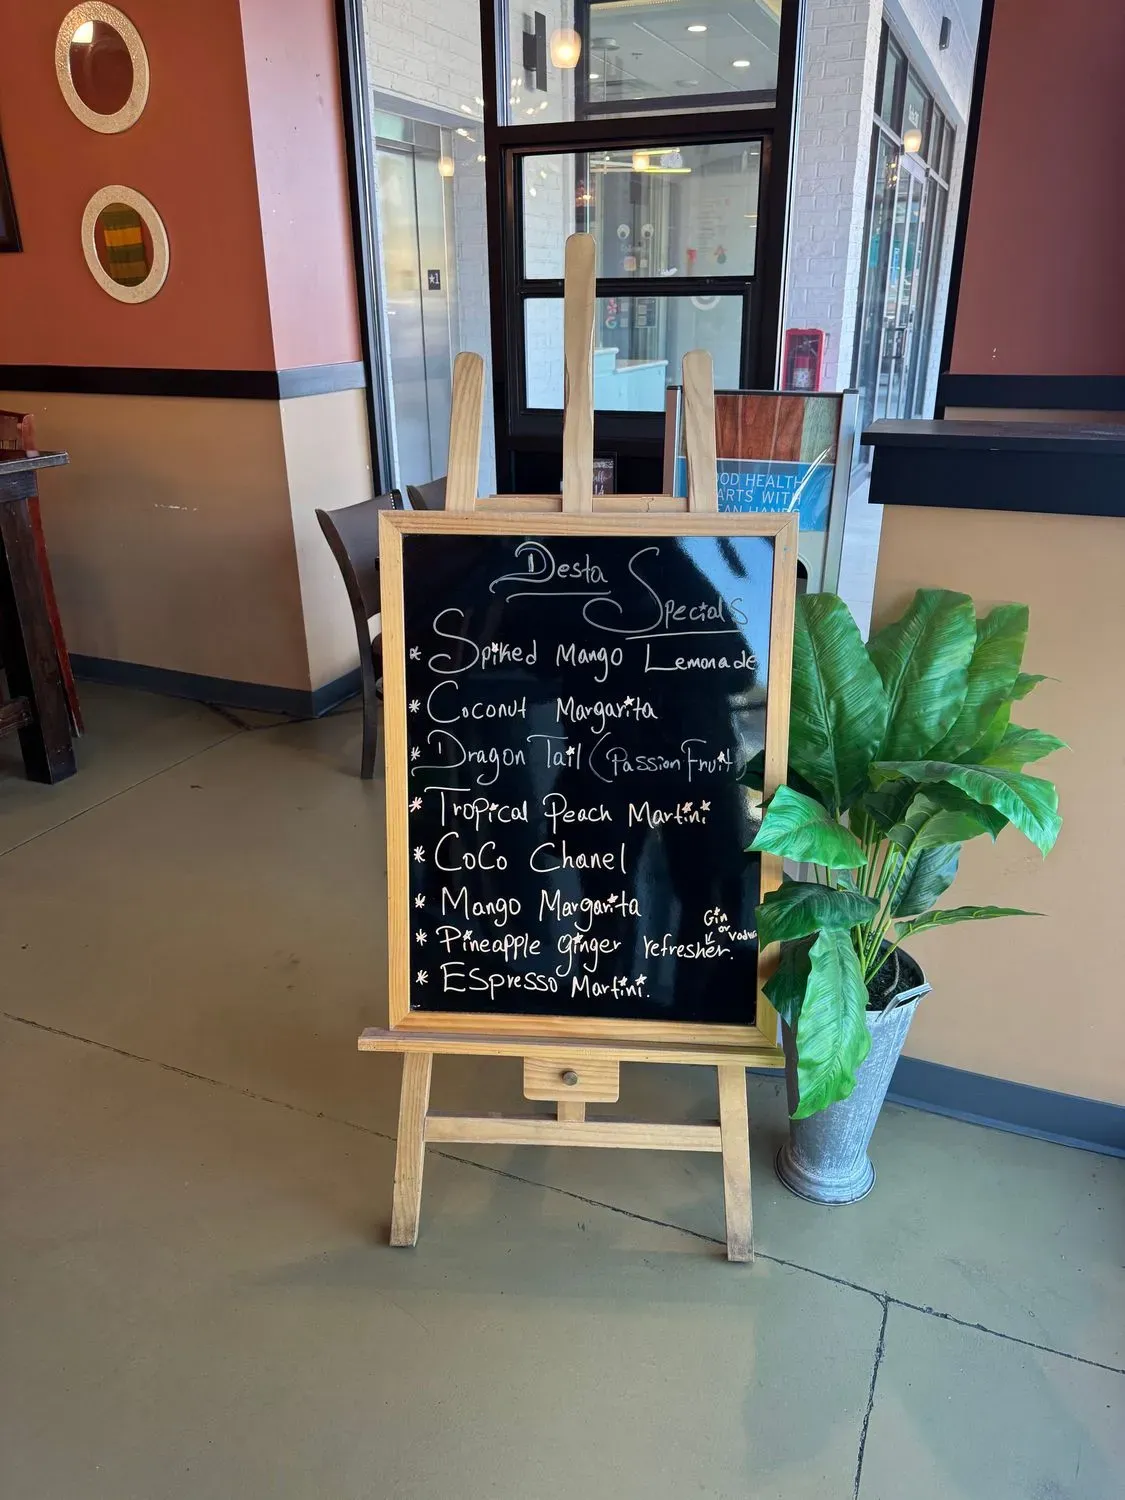 ★1
OOD HEALTH
ARTS WITH
EAN HANDS
Desta Specials
* Spiked Mango Lemonade
* Coconut Margarita
* Dragon Tail (Passion Fruit)
* Tropical Peach Martini
* CoCo Chanel
* Mango Margarita
Gin or Vodka
* Pineapple ginger refresher.
* Espresso Martini.